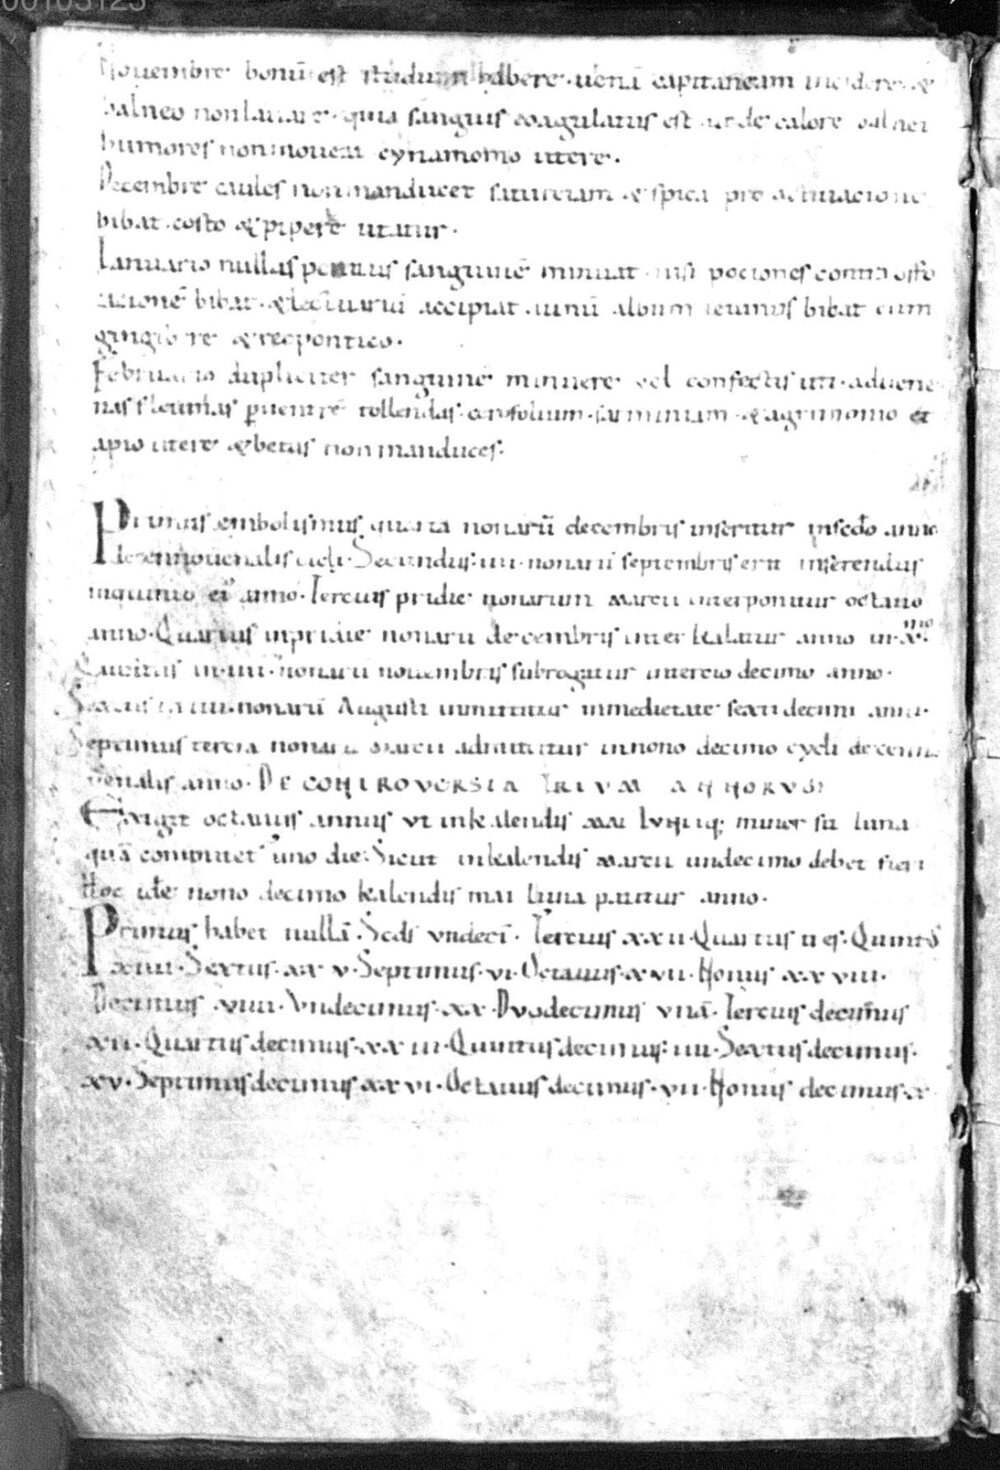 00105123
Nouembre bonū est studium habere uenā capitaneam incidere &
balneo non lauare quia sanguis coagulatus est de calore balnei
humores non mouent cynamomo utere.
Decembre caules non manducet satureiam & spica pro
bibat costo & pipere utatur.
Ianuario nullas sanguinē minuat nisi pociones contra offo
cationē bibat & lectuariū accipiat uinū album ieiunus bibat cum
re & reopontico.
Februario dupliciter sanguinē minuere uel confectis uti
nas fleumas p uentrē tollendas cerofolium & agrimonio et
apio utere & betas non manduces.
Primus embolismus quarta nonarū decembris inseritur in scdo anno
decennouenalis cicli. Secundus: iiii nonarū septembris erit inserendus
in quinto ei anno. Tercius pridie nonarum marcii interponitur octauo
anno. Quartus in pridie nonarū decembris interkalatur anno in x.mo
Quintus in iiii nonarū nouembris subrogatur in tercio decimo anno.
Sextus in iiii nonarū Augusti inmittitur in medietate sexti decimi anni.
Septimus tercia nonarū marcii admittitur in nono decimo cycli decenno
uenalis anno. DE CONTROVERSIA TRIUM ANNORUM
Exigit octauus annus ut in kalendis mai lunaq; minor sit luna
quā computet uno die: Sicut in kalendis marcii undecimo debet fieri
Hoc idē nono decimo kalendis mai luna patitur anno.
Primus habet nullā. Scds undecī. Tercius xxii. Quartus tres. Quintꝰ
xiiii. Sextus. xxv. Septimus. vi. Octauus. xvii. Nonus xxviii.
Decimus viiii. Vndecimus. xx. Duodecimus unā. Tercius decimus
xii. Quartus decimus. xxiii. Quintus decimus: iiii. Sextus decimus.
xv. Septimus decimus xxvi. Octauus decimus. vii. Nonus decimus.